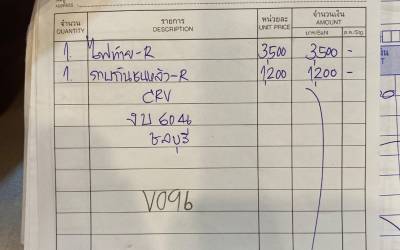 จำนวน
QUANTITY
รายการ
DESCRIPTION
หน่วยละ
UNIT PRICE
จำนวนเงิน
AMOUNT
1. ไฟท้าย-R 3,500 3,500 -
1. -R 1,200 1,200 -
CRV
งบ 6046
ชลบุรี
V096